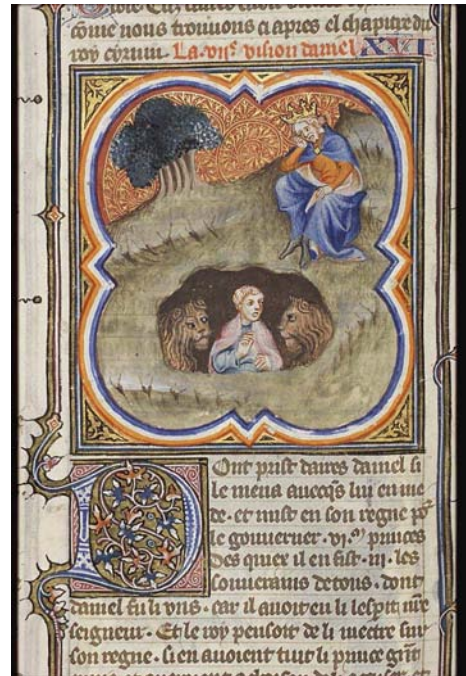 côme nous trouuons cy apres el chapitre du
roy cyrum. La .vii.e vision daniel XVI
Dont prist daires daniel si
le mena auecqs lui en me
de. et mist en son regne po
le gouuerner .vi.xx princes
Des quiex il en fist .iii. les
souuerains de tous. dont
daniel fu li vns. car il auoit en li lespit nre
seigneur. Et le roy pensoit de li mectre sur
son regne. si en auoient tuit li prince grāt